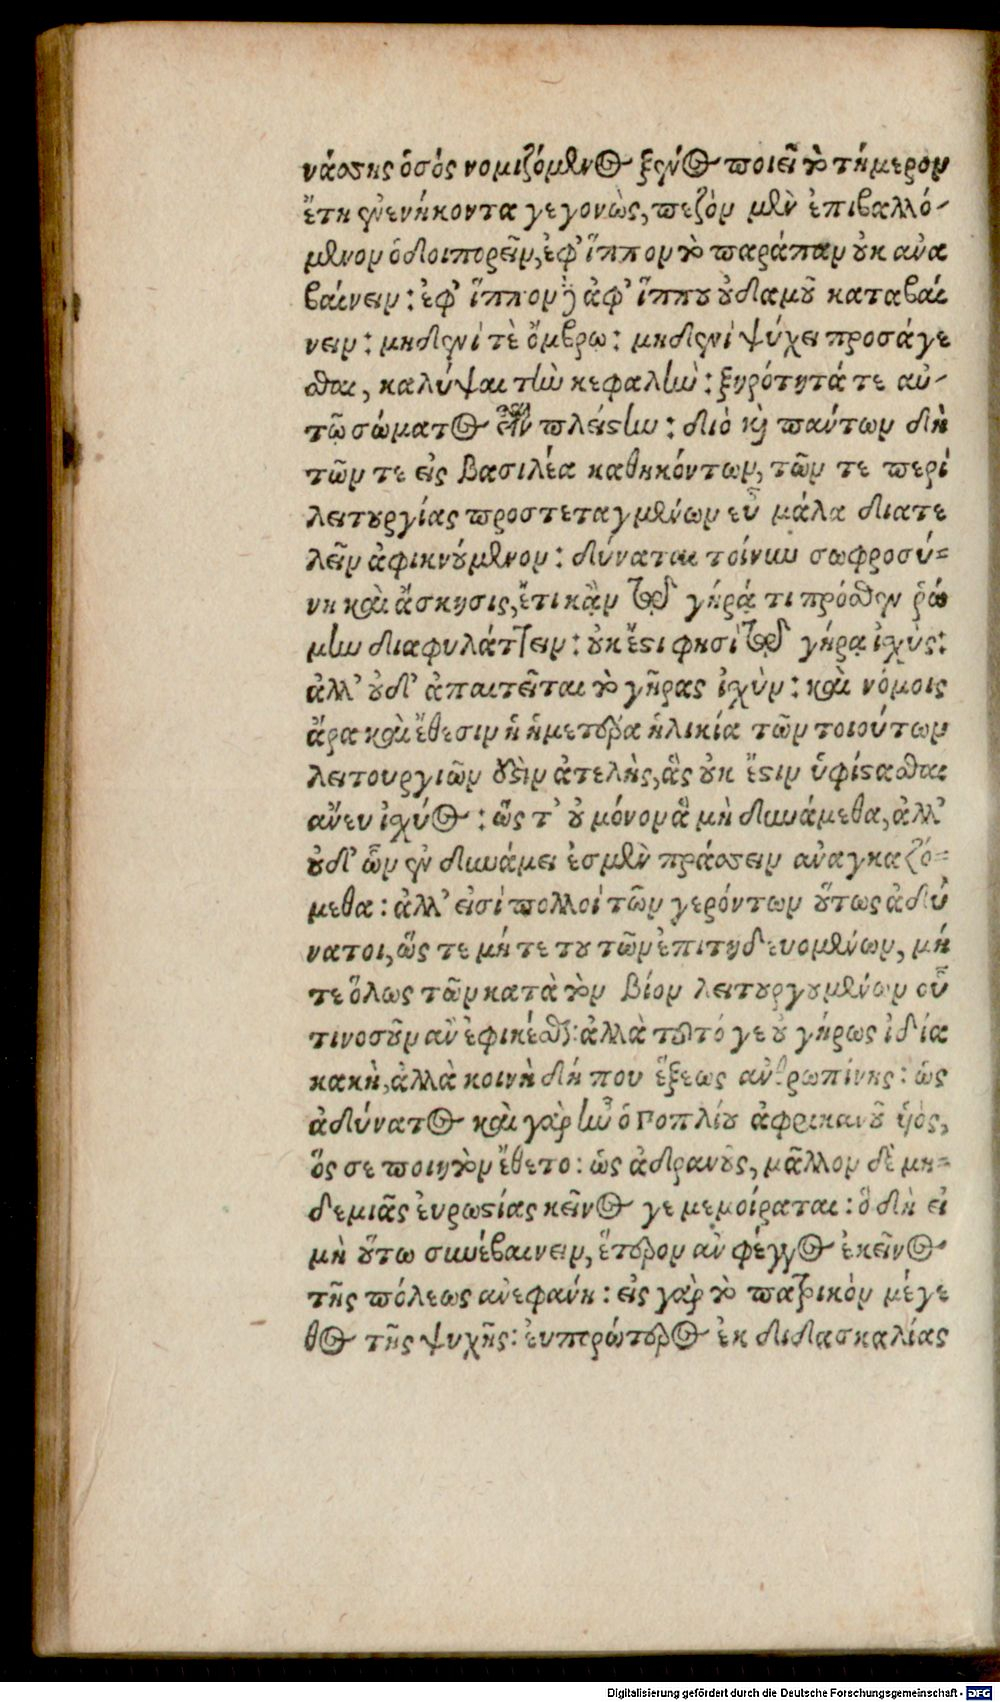 νάσσης ὁ σὸς νομιζόμενος ξένος ποιεῖ τὸ τήμερον
ἔτη ἐνενήκοντα γεγονὼς, πεζὸν μὲν ἐπιβαλλό-
μενον ὁδοιπορεῖν, ἐφ' ἵππον τὸ παράπαν οὐκ ἀνα
βαίνειν: ἐφ' ἵππον δὲ ἀφ' ἵππου οὐδαμοῦ καταβαί
νειν: μηδενί τὲ ὄμβρῳ: μηδενὶ ψύχει προσάγε
σθαι, καλύψαι τὴν κεφαλὴν: ξηρότητά τε αὐ-
τῷ σώματος εἶναι πλείστην: διὸ καὶ πάντων δὴ
τῶν τε εἰς βασιλέα καθηκόντων, τῶν τε περὶ
λειτουργίας προστεταγμένων εὖ μάλα διατε
λεῖν ἀφικνούμενον: δύναται τοίνυν σωφροσύ-
νη καὶ ἄσκησις, ἔτι κἂν τῷ γήρᾳ τι πρόσθεν ῥώ
μην διαφυλάττειν: οὐκ ἔστι φησὶ τῷ γήρᾳ ἰχὺς:
ἀλλ' οὐδ' ἀπαιτεῖται τὸ γῆρας ἰχὺν: καὶ νόμοις
ἄρα καὶ ἔθεσιν ἡ ἡμετέρα ἡλικία τῶν τοιούτων
λειτουργιῶν οὖσιν ἀτελὴς, ἃς οὐκ ἔστιν ὑφίστασθαι
ἄνευ ἰχύος: ὥς τ' οὐ μόνον ἃ μὴ δυνάμεθα, ἀλλ'
οὐδ' ὧν ἐν δυνάμει ἐσμὲν πράσσειν ἀναγκαζό-
μεθα: ἀλλ' εἰσὶ πολλοὶ τῶν γερόντων οὕτως ἀδύ
νατοι, ὥς τε μήτε του τῶν ἐπιτηδευομένων, μή
τε ὅλως τῶν κατὰ τὸν βίον λειτουργουμένων οὗ
τινοσοῦν ἂν ἐφικέσθαι: ἀλλὰ τοῦτό γε οὐ γήρως ἰδία
κακὴ, ἀλλὰ κοινὴ δήπου ἕξεως ἀνθρωπίνης: ὡς
ἀδύνατος καὶ γὰρ ἦν ὁ Ποπλίου ἀφρικανοῦ ὑὸς,
ὅς σε ποιητὸν ἔθετο: ὡς ἀδρανοὺς, μᾶλλον δὲ μη-
δεμιᾶς ἐυρωστίας κεῖνος γε μεμοίραται: ὃ δὴ εἰ
μὴ οὕτω συνέβαινειν, ἕτερον ἂν φέγγος ἐκεῖνος
τῆς πόλεως ἀνεφάνη: εἰς γὰρ τὸ πατρικὸν μέγε
θος τῆς ψυχῆς: ἐυπρώτερος ἐκ διδασκαλίας
Digitalisierung gefördert durch die Deutsche Forschungsgemeinschaft - DFG